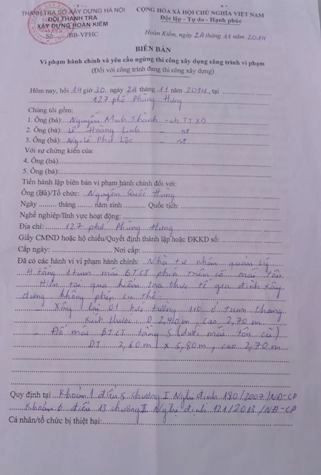 THANH TRA SỞ XÂY DỰNG HÀ NỘI
ĐỘI THANH TRA
XÂY DỰNG HOÀN KIẾM
Số: /BB-VPHC
CỘNG HÒA XÃ HỘI CHỦ NGHĨA VIỆT NAM
Độc lập - Tự do - Hạnh phúc
Hoàn Kiếm, ngày 24 tháng 11 năm 2014
BIÊN BẢN
Vi phạm hành chính và yêu cầu ngừng thi công xây dựng công trình vi phạm
(Đối với công trình đang thi công xây dựng)
Hôm nay, hồi 14 giờ 30, ngày 24 tháng 11 năm 2014, tại
127 phố Phùng Hưng
Chúng tôi gồm:
1. Ông (bà): Nguyễn Minh TTXD
2. Ông (bà): Lê Hoàng Linh nt
3. Ông (bà): Phú Lộc nt
Với sự chứng kiến của:
4. Ông (bà):
5. Ông (bà):
Tiến hành lập biên bản vi phạm hành chính đối với:
Ông (Bà)/Tổ chức: Nguyễn Quốc Hưng
Ngày tháng năm sinh Quốc tịch:
Nghề nghiệp/lĩnh vực hoạt động:
Địa chỉ: 127 phố Phùng Hưng
Giấy CMND hoặc hộ chiếu/Quyết định thành lập hoặc ĐKKD số:
Cấp ngày: Nơi cấp:
Đã có các hành vi vi phạm hành chính: Nhà tư nhân
4 tầng mái BTCT phía trên có mái tôn
Hiện tại qua kiểm tra thực tế gia đình xây
dựng không phép cụ thể:
- Xây 01 tường 110
Kích thước: 2,40m, cao 2,70m
- Đổ mái BTCT tầng 5 (dưới mái tôn cũ)
DT 2,60m x 5,80m, cao 2,70m
Quy định tại: Khoản 1 điều 5 chương I Nghị định 180/2007/NĐ-CP
Khoản 6 điều 13 chương II Nghị định 121/2013/NĐ-CP
Cá nhân/tổ chức bị thiệt hại: